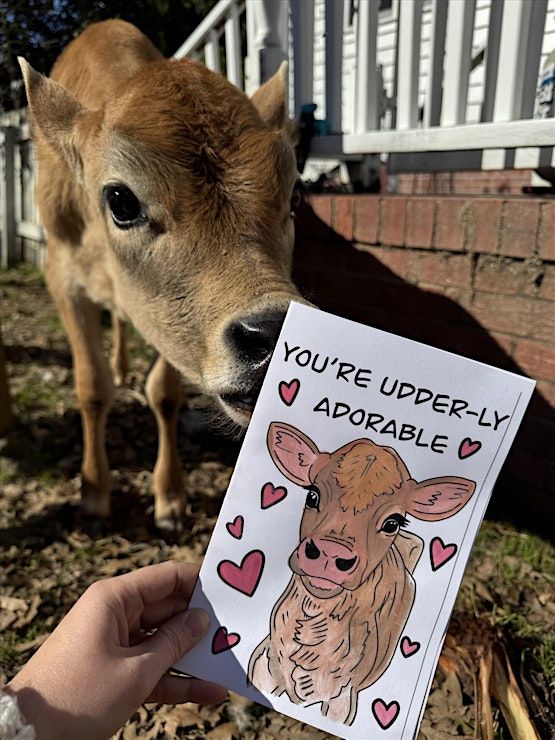 YOU'RE UDDER-LY
ADORABLE